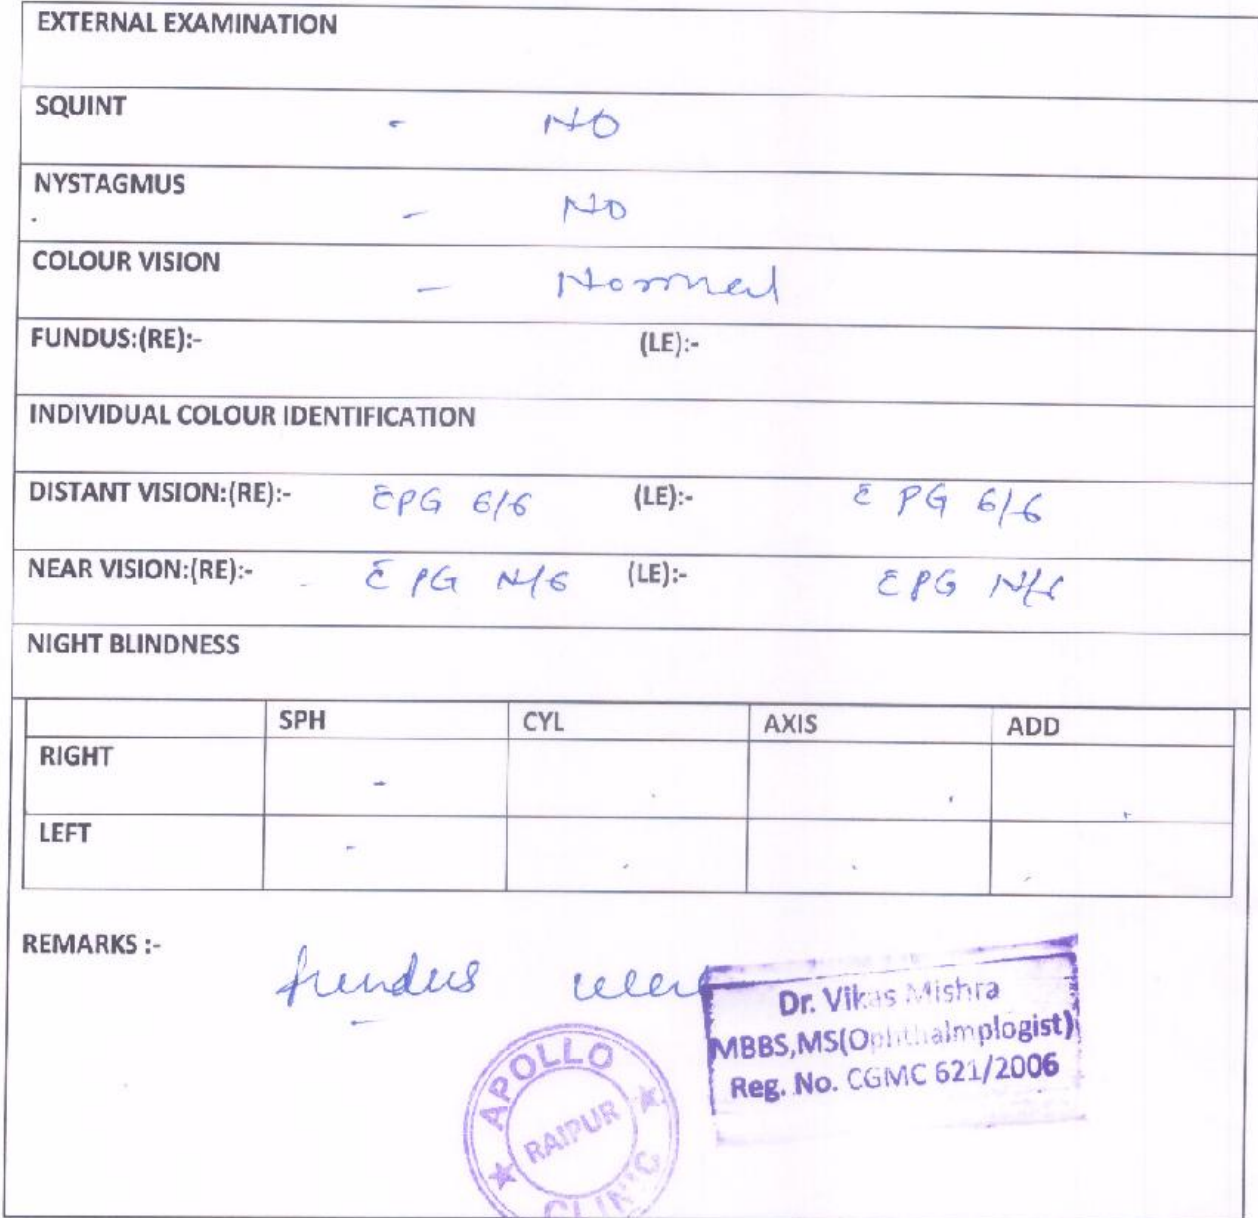 EXTERNAL EXAMINATION
SQUINT - NO
NYSTAGMUS - NO
COLOUR VISION - Normal
FUNDUS:(RE):- (LE):-
INDIVIDUAL COLOUR IDENTIFICATION
DISTANT VISION:(RE):- C̄PG 6/6 (LE):- C̄ PG 6/6
NEAR VISION:(RE):- C̄ PG N/6 (LE):- C̄PG N/6
NIGHT BLINDNESS
SPH CYL AXIS ADD
RIGHT - - - -
LEFT - - - -
REMARKS :- fundus
Dr. Vikas Mishra
MBBS,MS(Ophthalmplogist)
Reg. No. CGMC 621/2006
APOLLO
RAIPUR
CLINIC